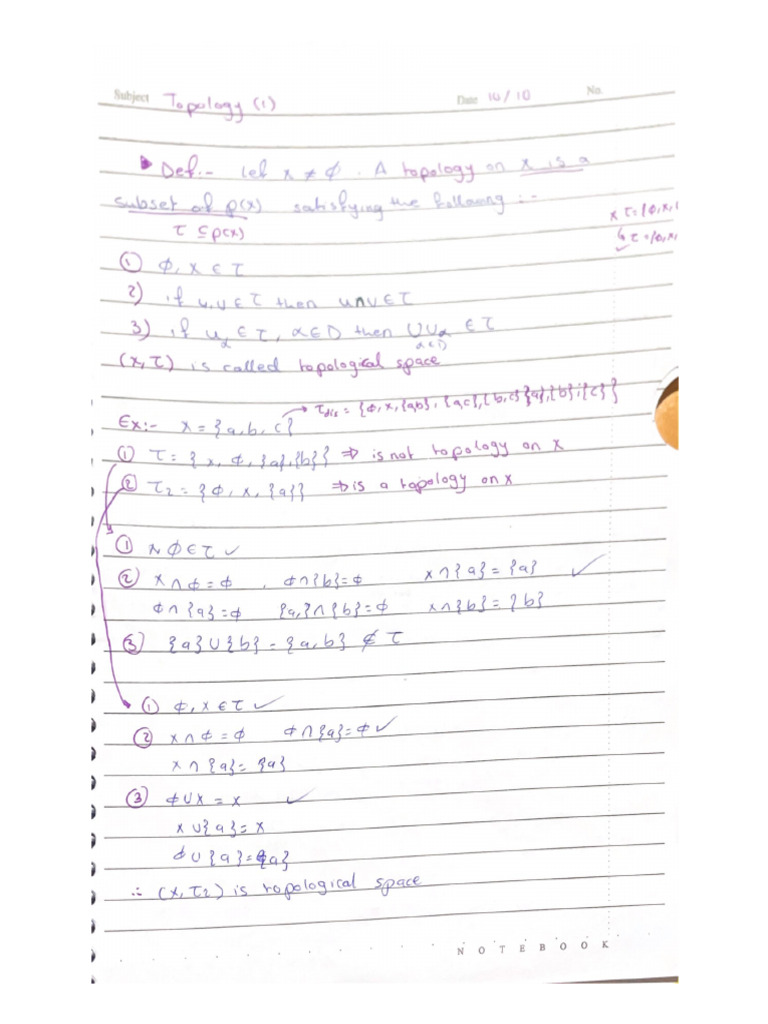 Subject Topology (1) Date 10/10 No.
Def:- let x ≠ ϕ . A topology on x is a
subset of p(x) satisfying the following :-
τ ⊆ p(x)
x τ = {ϕ, x,
↳ τ = {ϕ, x,
① ϕ, x ∈ τ
2) if u, v ∈ τ then u∩v ∈ τ
3) if u_α ∈ τ, α ∈ D then ∪u_α ∈ τ
α∈D
(x, τ) is called topological space
→ τ_dis = {ϕ, x, {a,b}, {a,c}, {b,c}, {a}, {b}, {c}}
Ex:- x = {a, b, c}
① τ = { x, ϕ, {a}, {b}} ⇒ is not topology on x
② τ2 = {ϕ, x, {a}} ⇒ is a topology on x
① x, ϕ ∈ τ ✓
② x ∩ ϕ = ϕ , ϕ ∩ {b} = ϕ x ∩ {a} = {a} ✓
ϕ ∩ {a} = ϕ {a,} ∩ {b} = ϕ x ∩ {b} = {b}
③ {a} ∪ {b} = {a, b} ∉ τ
① ϕ, x ∈ τ ✓
② x ∩ ϕ = ϕ ϕ ∩ {a} = ϕ ✓
x ∩ {a} = {a}
③ ϕ ∪ x = x ✓
x ∪ {a} = x
ϕ ∪ {a} = {a}
∴ (x, τ2) is topological space
NOTEBOOK